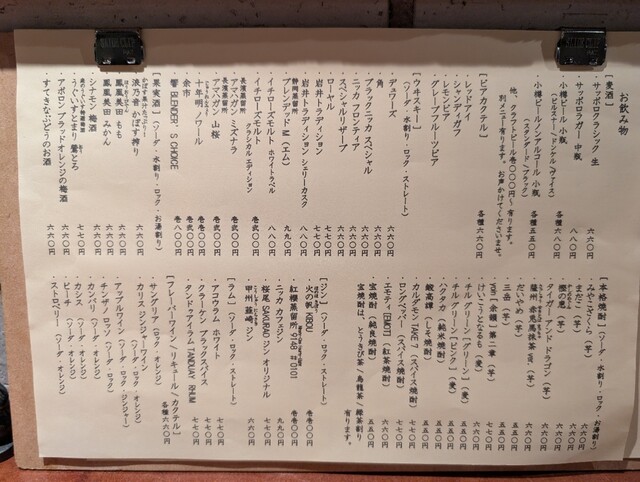 お飲み物
［麦酒］
・サッポロクラシック 生 六六〇
・サッポロラガー 中瓶 八八〇
・小樽ビール 小瓶
（ピルスナー・ドンケル・ヴァイス） 各種 六八〇
・小樽ビールノンアルコール 小瓶
（スタンダード／ブラック） 各種 五五〇
他、クラフトビール壱〇〇〇円〜有ります。
別メニュー有ります。お声かけてくださいませ。
［ビアカクテル］ 各種 六六〇円
・レッドアイ
・シャンディガフ
・レモンビア
・グレープフルーツビア
［ウヰスキー］（ソーダ・水割り・ロック・ストレート）
・デュワーズ 六六〇
・角 六六〇
・ブラックニッカ スペシャル 六六〇
・ニッカ フロンティア 六六〇
・スペシャルリザーブ 六六〇
・ローヤル 七七〇
・岩井トラディション 七七〇
・岩井トラディション シェリーカスク 八八〇
静岡蒸留所
・ブレンデッド M 九九〇
・イチローズモルト ホワイトラベル 八八〇
・イチローズモルト
クラシカルエディション 壱弐〇〇
長濱蒸留所
・アマハガン ミズナラ 壱弐〇〇
長濱蒸留所
・アマハガン 山桜 壱弐〇〇
・十年明 ノワール 壱〇〇〇
・余市 壱弐〇〇
・響 BLENDER'S CHOICE 壱八〇〇
［果実酒］（ソーダ・水割り・ロック・お湯割り）
・浪乃音 かぼす搾り 六六〇
・鳳凰美田 もも 六六〇
・鳳凰美田 みかん 六六〇
・うぐいすとまり 鶯とろ 七七〇
・シナモン 梅酒 六六〇
・アポロン ブラッドオレンジの梅酒 六六〇
・すてきなぶどうのお酒 六六〇
［本格焼酎］（ソーダ・水割り・ロック・お湯割り）
・みやこざくら（芋） 六六〇
・まだこ（芋） 六六〇
・橙の恵（芋） 六六〇
・タイガー アンド ドラゴン（芋） 六六〇
・薩州 赤兎馬抹茶（芋） 六六〇
・だいやめ（芋） 五五〇
・三岳（芋） 五五〇
・けいこうとなるも（麦） 六六〇
・チル グリーン［グリーン］（麦） 五五〇
・チル グリーン［ピンク］（麦） 五五〇
・ハクタカ（純米焼酎） 五五〇
・鍛高譚（しそ焼酎） 五五〇
・カルダモン TAKE7（スパイス焼酎） 七七〇
・ロングペッパー（スパイス焼酎） 七七〇
・エモティ EMOTI（紅茶焼酎） 六六〇
・宝焼酎（純良焼酎） 五五〇
宝焼酎は、とうきび茶／烏龍茶／緑茶割り有ります。
［ジン］（ソーダ・ロック・ストレート）
・火の帆 KIBOU 壱壱〇〇
・紅櫻蒸留所 9148 #0101 壱壱〇〇
・ニッカ カフェジン 九九〇
・桜尾 SAKURAO ジン オリジナル 七七〇
・甲州 韮崎ジン 六六〇
［ラム］（ソーダ・ロック・ストレート）
・アコウラム ホワイト 七七〇
・クラーケン ブラックスパイス 七七〇
・タンドゥアイラム TANDUAY RHUM 七七〇
［フレーバーワイン／リキュール／カクテル］
各種 六六〇円
・サングリア（ロック・オレンジ）
・カリス ジンジャーワイン
（ソーダ・ロック・オレンジ）
・アップルワイン（ソーダ・ロック・ジンジャー）
・チンザノ ロッソ（ソーダ・ロック・オレンジ）
・カンパリ（ソーダ・オレンジ）
・カシス（ソーダ・オレンジ）
・ピーチ（ソーダ・オレンジ）
・ストロベリー（ソーダ・オレンジ）